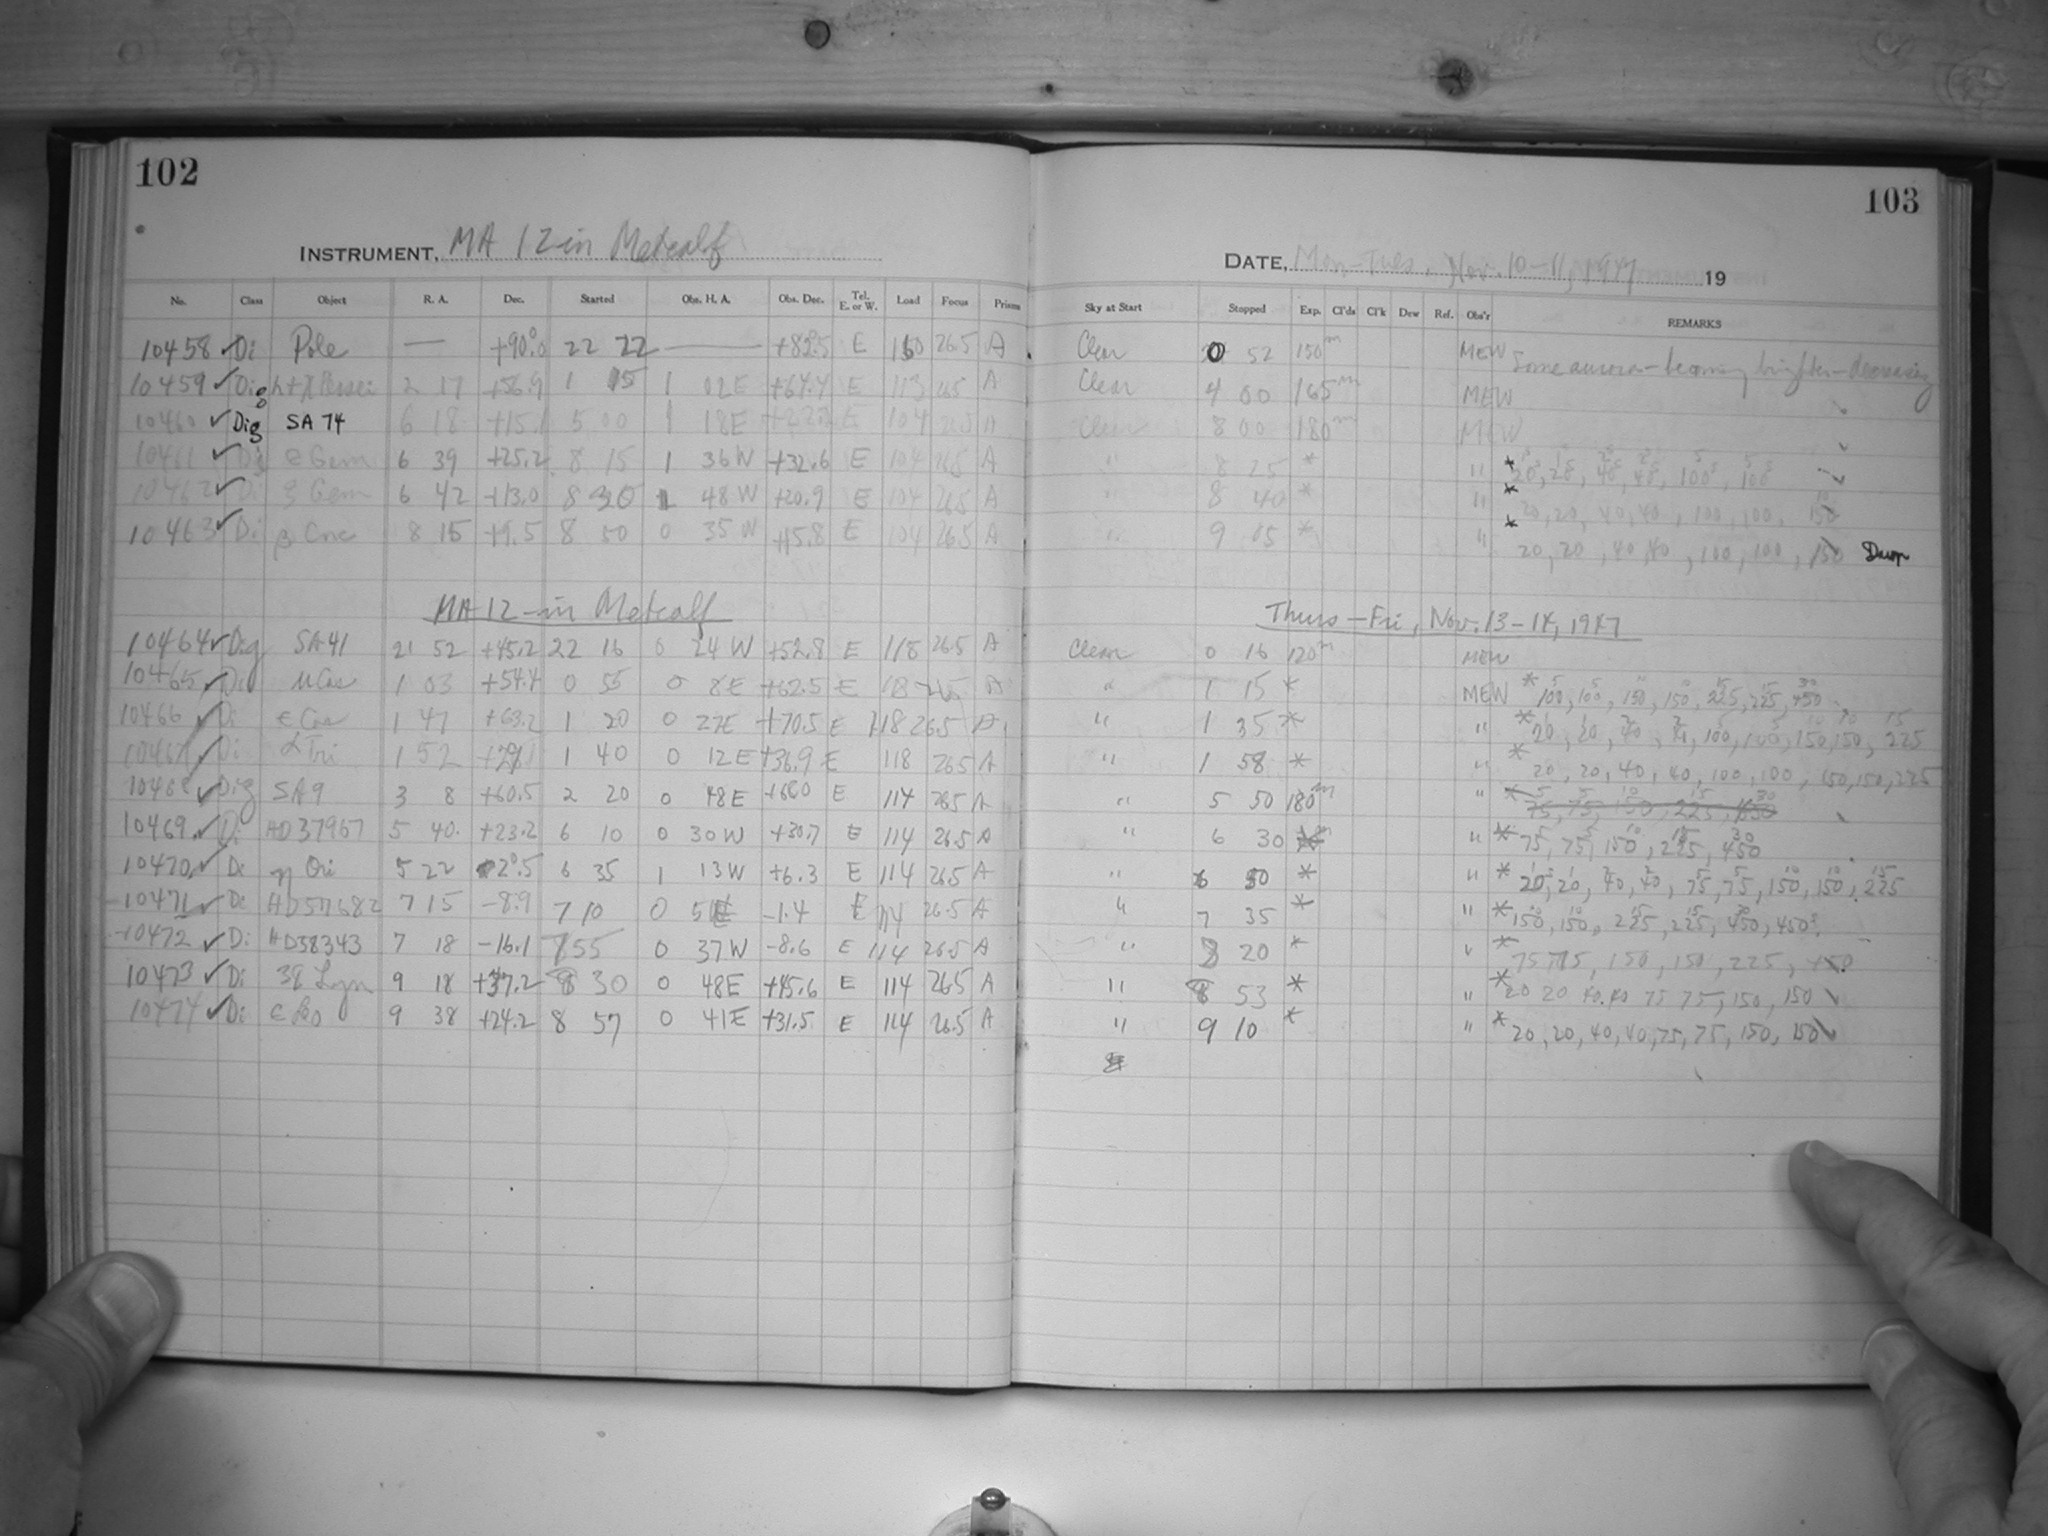 102
INSTRUMENT, MA 12-in Metcalf
No. Class Object R. A. Dec. Started Obs. H. A. Obs. Dec. Tel. E. or W. Load Focus Prisms
10458 ✓ Di Pole — +90.0 22 22 — +82.5 E 160 26.5 A
10459 ✓ Dig h+χ Persei 2 17 +56.9 1 15 1 02E +64.4 E 113 26.5 A
10460 ✓ Dig SA 74 6 18 +15.1 5 00 1 18E E 104 26.5 A
10461 ✓ Di ε Gem 6 39 +25.2 8 15 1 36W +32.6 E 104 26.5 A
10462 ✓ Di ξ Gem 6 42 +13.0 8 30 1 48W +20.9 E 104 26.5 A
10463 ✓ Di β Cnc 8 15 +9.5 8 50 0 35W +15.8 E 104 26.5 A
MA 12-in Metcalf
10464 ✓ Dig SA 41 21 52 +45.2 22 16 0 24W +52.8 E 118 26.5 A
10465 ✓ Di μ Cas 1 03 +54.4 0 55 0 8E +62.5 E 118 26.5 A
10466 ✓ Di ε Cas 1 47 +63.2 1 20 0 27E +70.5 E 118 26.5 A
10467 ✓ Di α Tri 1 52 1 40 0 12E +36.9 E 118 26.5 A
10468 ✓ Dig SA 9 3 8 +60.5 2 20 0 48E E 114 26.5 A
10469 ✓ Di HD37967 5 40 +23.2 6 10 0 30W +30.7 E 114 26.5 A
10470 ✓ Di η Ori 5 22 6 35 1 13W +6.3 E 114 26.5 A
10471 ✓ Di HD57682 7 15 -8.9 7 10 0 5E -1.4 E 114 26.5 A
10472 ✓ Di HD38343 7 18 -16.1 7 55 0 37W -8.6 E 114 26.5 A
10473 ✓ Di 38 Lyn 9 18 +37.2 8 30 0 48E +45.6 E 114 26.5 A
10474 ✓ Di ε Leo 9 38 +24.2 8 57 0 41E +31.5 E 114 26.5 A
103
DATE, Mon-Tues, Nov. 10-11, 1947 19
Sky at Start Stopped Exp. Cl'ds Cl'k Dew Ref. Obs'r REMARKS
Clear 0 52 150m MEW Some aurora - becoming brighter - decreasing
Clear 4 00 165m MEW
Clear 8 00 180m MEW
" 8 25 * " * 20, 20, 40, 40, 100, 100
" 8 40 * " * 20, 20, 40, 40, 100, 100, 150
" 9 05 * " * 20, 20, 40, 40, 100, 100, 150 Dawn
Thurs - Fri, Nov. 13-14, 1947
Clear 0 16 120m MEW
" 1 15 * MEW * 100, 100, 150, 150, 225, 225, 450
" 1 35 * " * 20, 20, 40, 40, 100, 100, 150, 150, 225
" 1 58 * " * 20, 20, 40, 40, 100, 100, 150, 150, 225
" 5 50 180m " * 75, 75, 150, 225, 450
" 6 30 * " * 75, 75, 150, 225, 450
" 6 50 * " * 20, 20, 40, 40, 75, 75, 150, 150, 225
" 7 35 * " * 150, 150, 225, 225, 450, 450
" 8 20 * " * 75 75, 150, 150, 225, 450
" 8 53 * " * 20 20 40, 40 75 75, 150, 150
" 9 10 * " * 20, 20, 40, 40, 75, 75, 150, 150